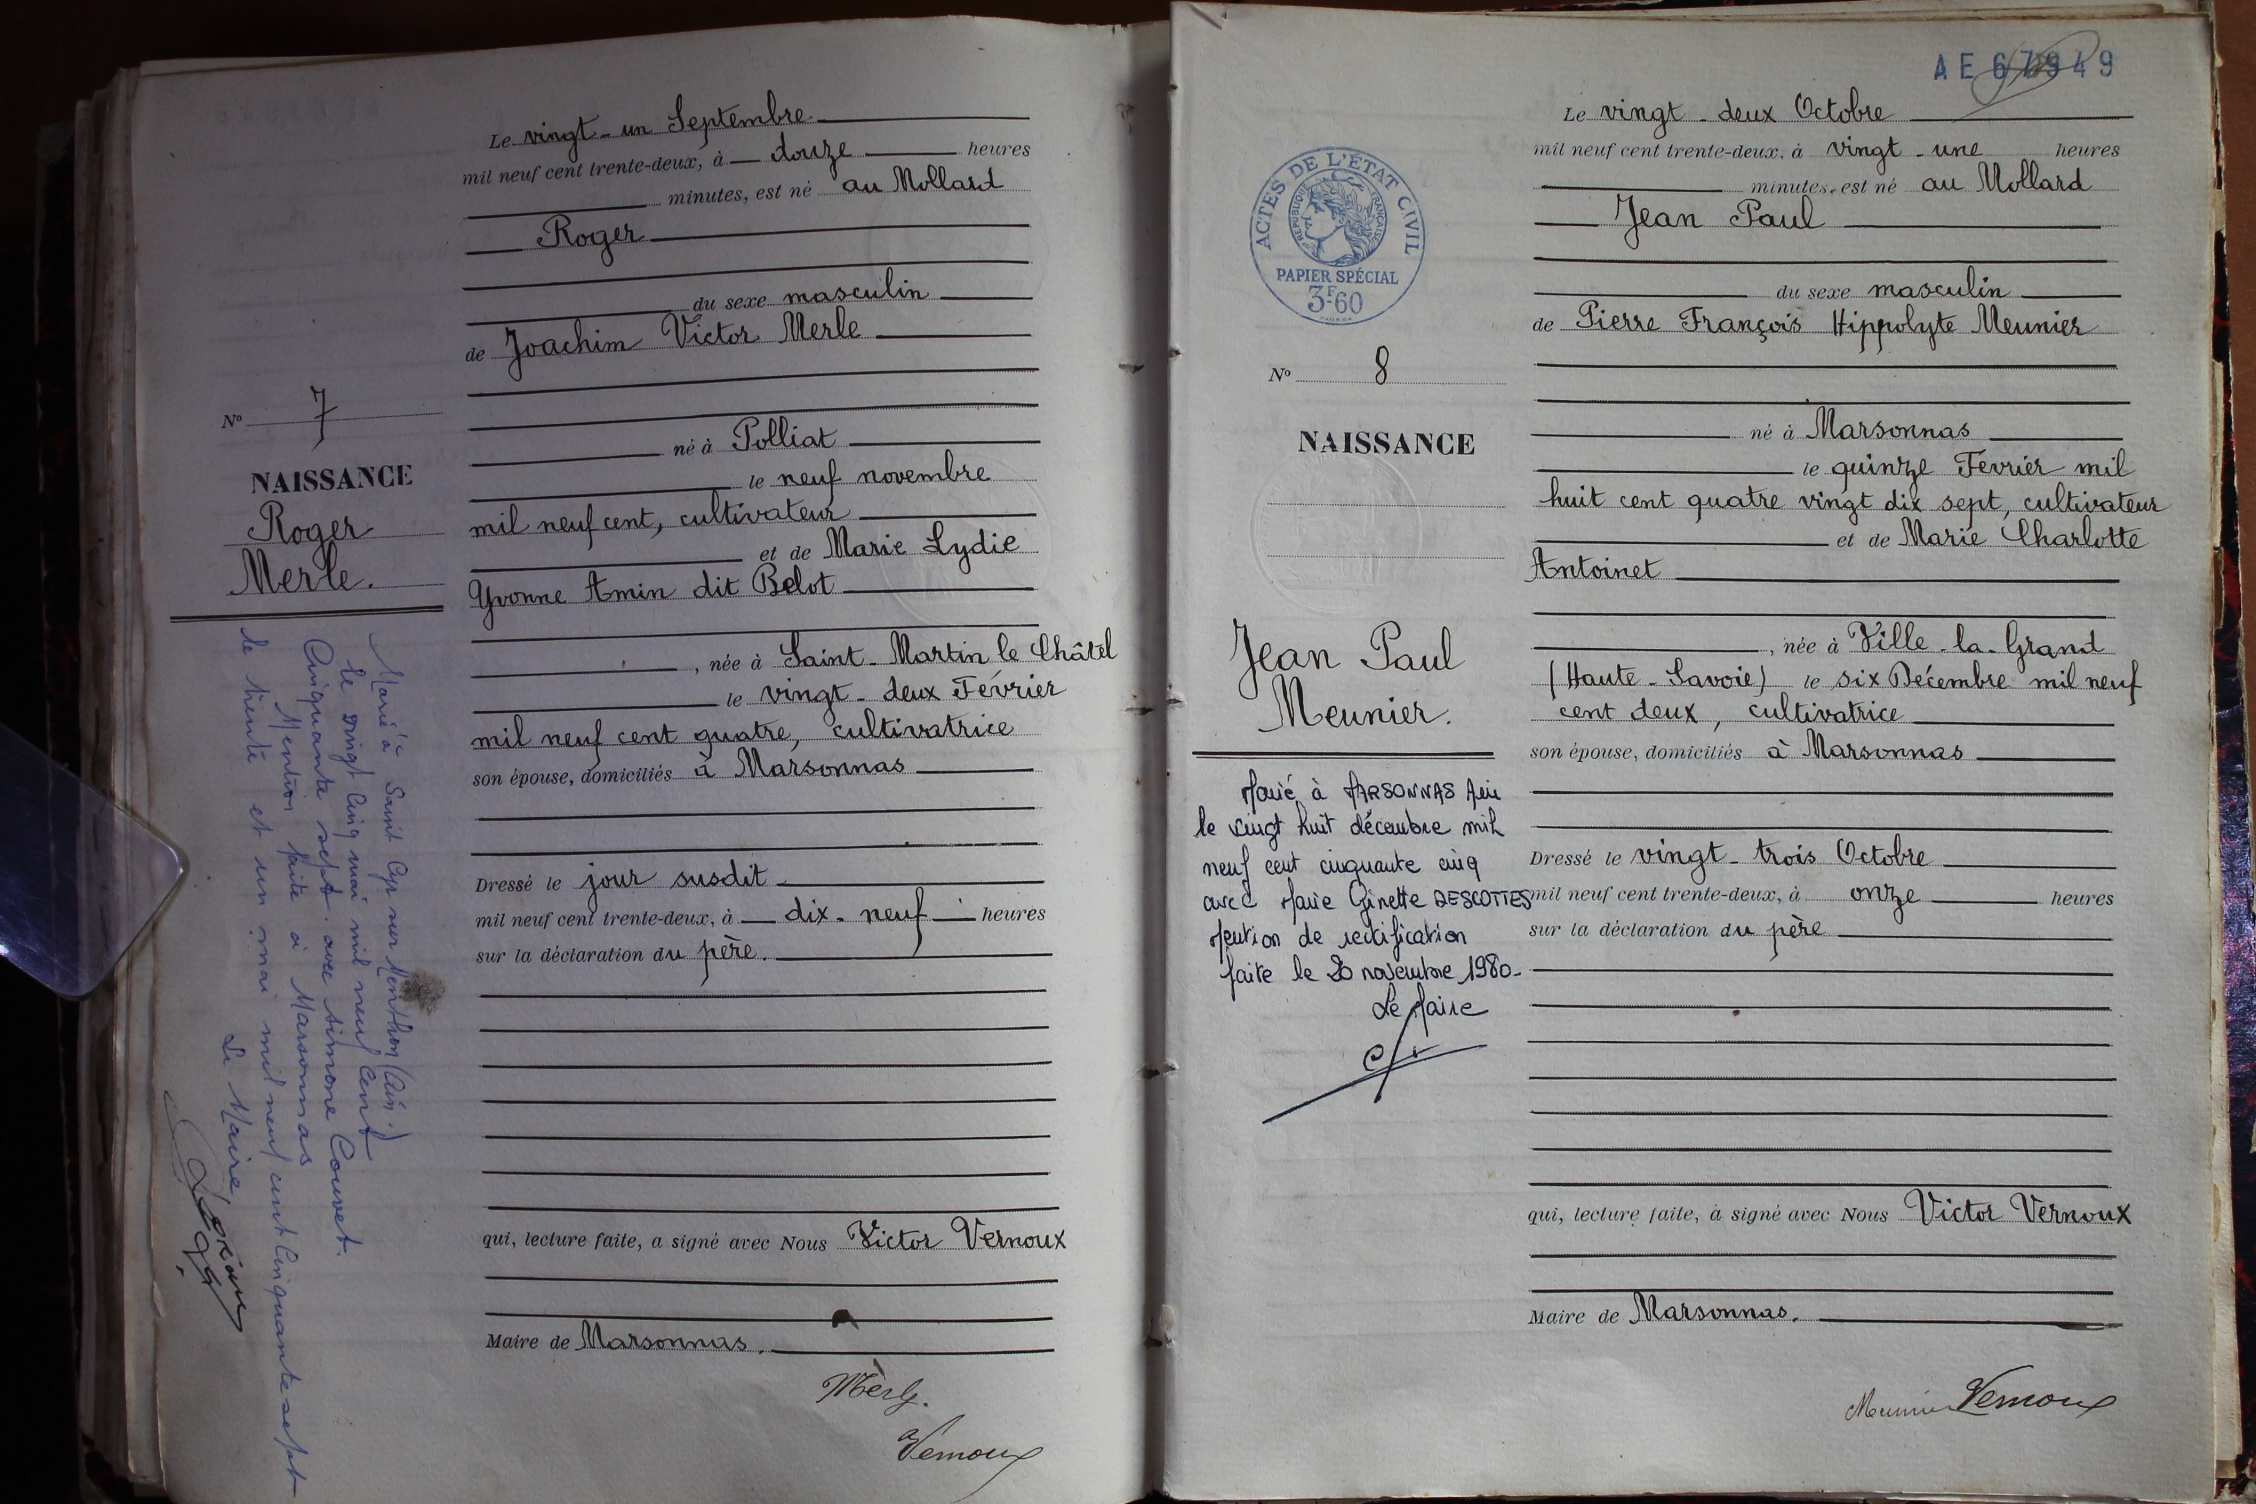 Le vingt-un Septembre
mil neuf cent trente-deux, à douze heures
minutes, est né au Mollard
Roger
du sexe masculin
de Joachim Victor Merle
né à Polliat
le neuf novembre
mil neuf cent, cultivateur
et de Marie Lydie
Yvonne Amin dit Belot
, née à Saint-Martin le Châtel
le vingt-deux Février
mil neuf cent quatre, cultivatrice
son épouse, domiciliés à Marsonnas
Dressé le jour susdit
mil neuf cent trente-deux, à dix-neuf heures
sur la déclaration du père.
qui, lecture faite, a signé avec Nous Victor Vernoux
Maire de Marsonnas.
Vernoux
N° 7
NAISSANCE
Roger
Merle.
Marié à Saint Cyr sur Menthon (Ain.)
le vingt cinq mai mil neuf cent
Cinquante sept. avec Simone Couvet.
Mention faite à Marsonnas
le trente et un mai mil neuf cent cinquante-sept
Le Maire
AE 67949
ACTES DE L'ÉTAT CIVIL
RÉPUBLIQUE FRANÇAISE
PAPIER SPÉCIAL
3F60
N° 8
NAISSANCE
Jean Paul
Meunier.
Marié à MARSONNAS Ain
le vingt huit décembre mil
neuf cent cinquante cinq
avec Marie Ginette DESCOTTES
Mention de rectification
faite le 20 novembre 1980-
Le Maire
Le vingt-deux Octobre
mil neuf cent trente-deux, à vingt-une heures
minutes, est né au Mollard
Jean Paul
du sexe masculin
de Pierre François Hippolyte Meunier
né à Marsonnas
le quinze Février mil
huit cent quatre vingt dix sept, cultivateur
et de Marie Charlotte
Antoinet
, née à Ville-la-Grand
(Haute-Savoie) le six Décembre mil neuf
cent deux, cultivatrice
son épouse, domiciliés à Marsonnas
Dressé le vingt-trois Octobre
mil neuf cent trente-deux, à onze heures
sur la déclaration du père
qui, lecture faite, à signé avec Nous Victor Vernoux
Maire de Marsonnas.
Meunier Vernoux